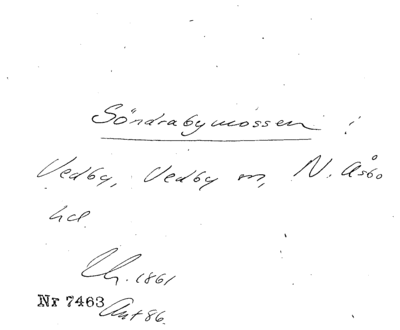 Söndrabymossen
Vedby, Vedby sn, N. Åsbo
hd.
Ch. 1861
Nr 7463
Ant 86.